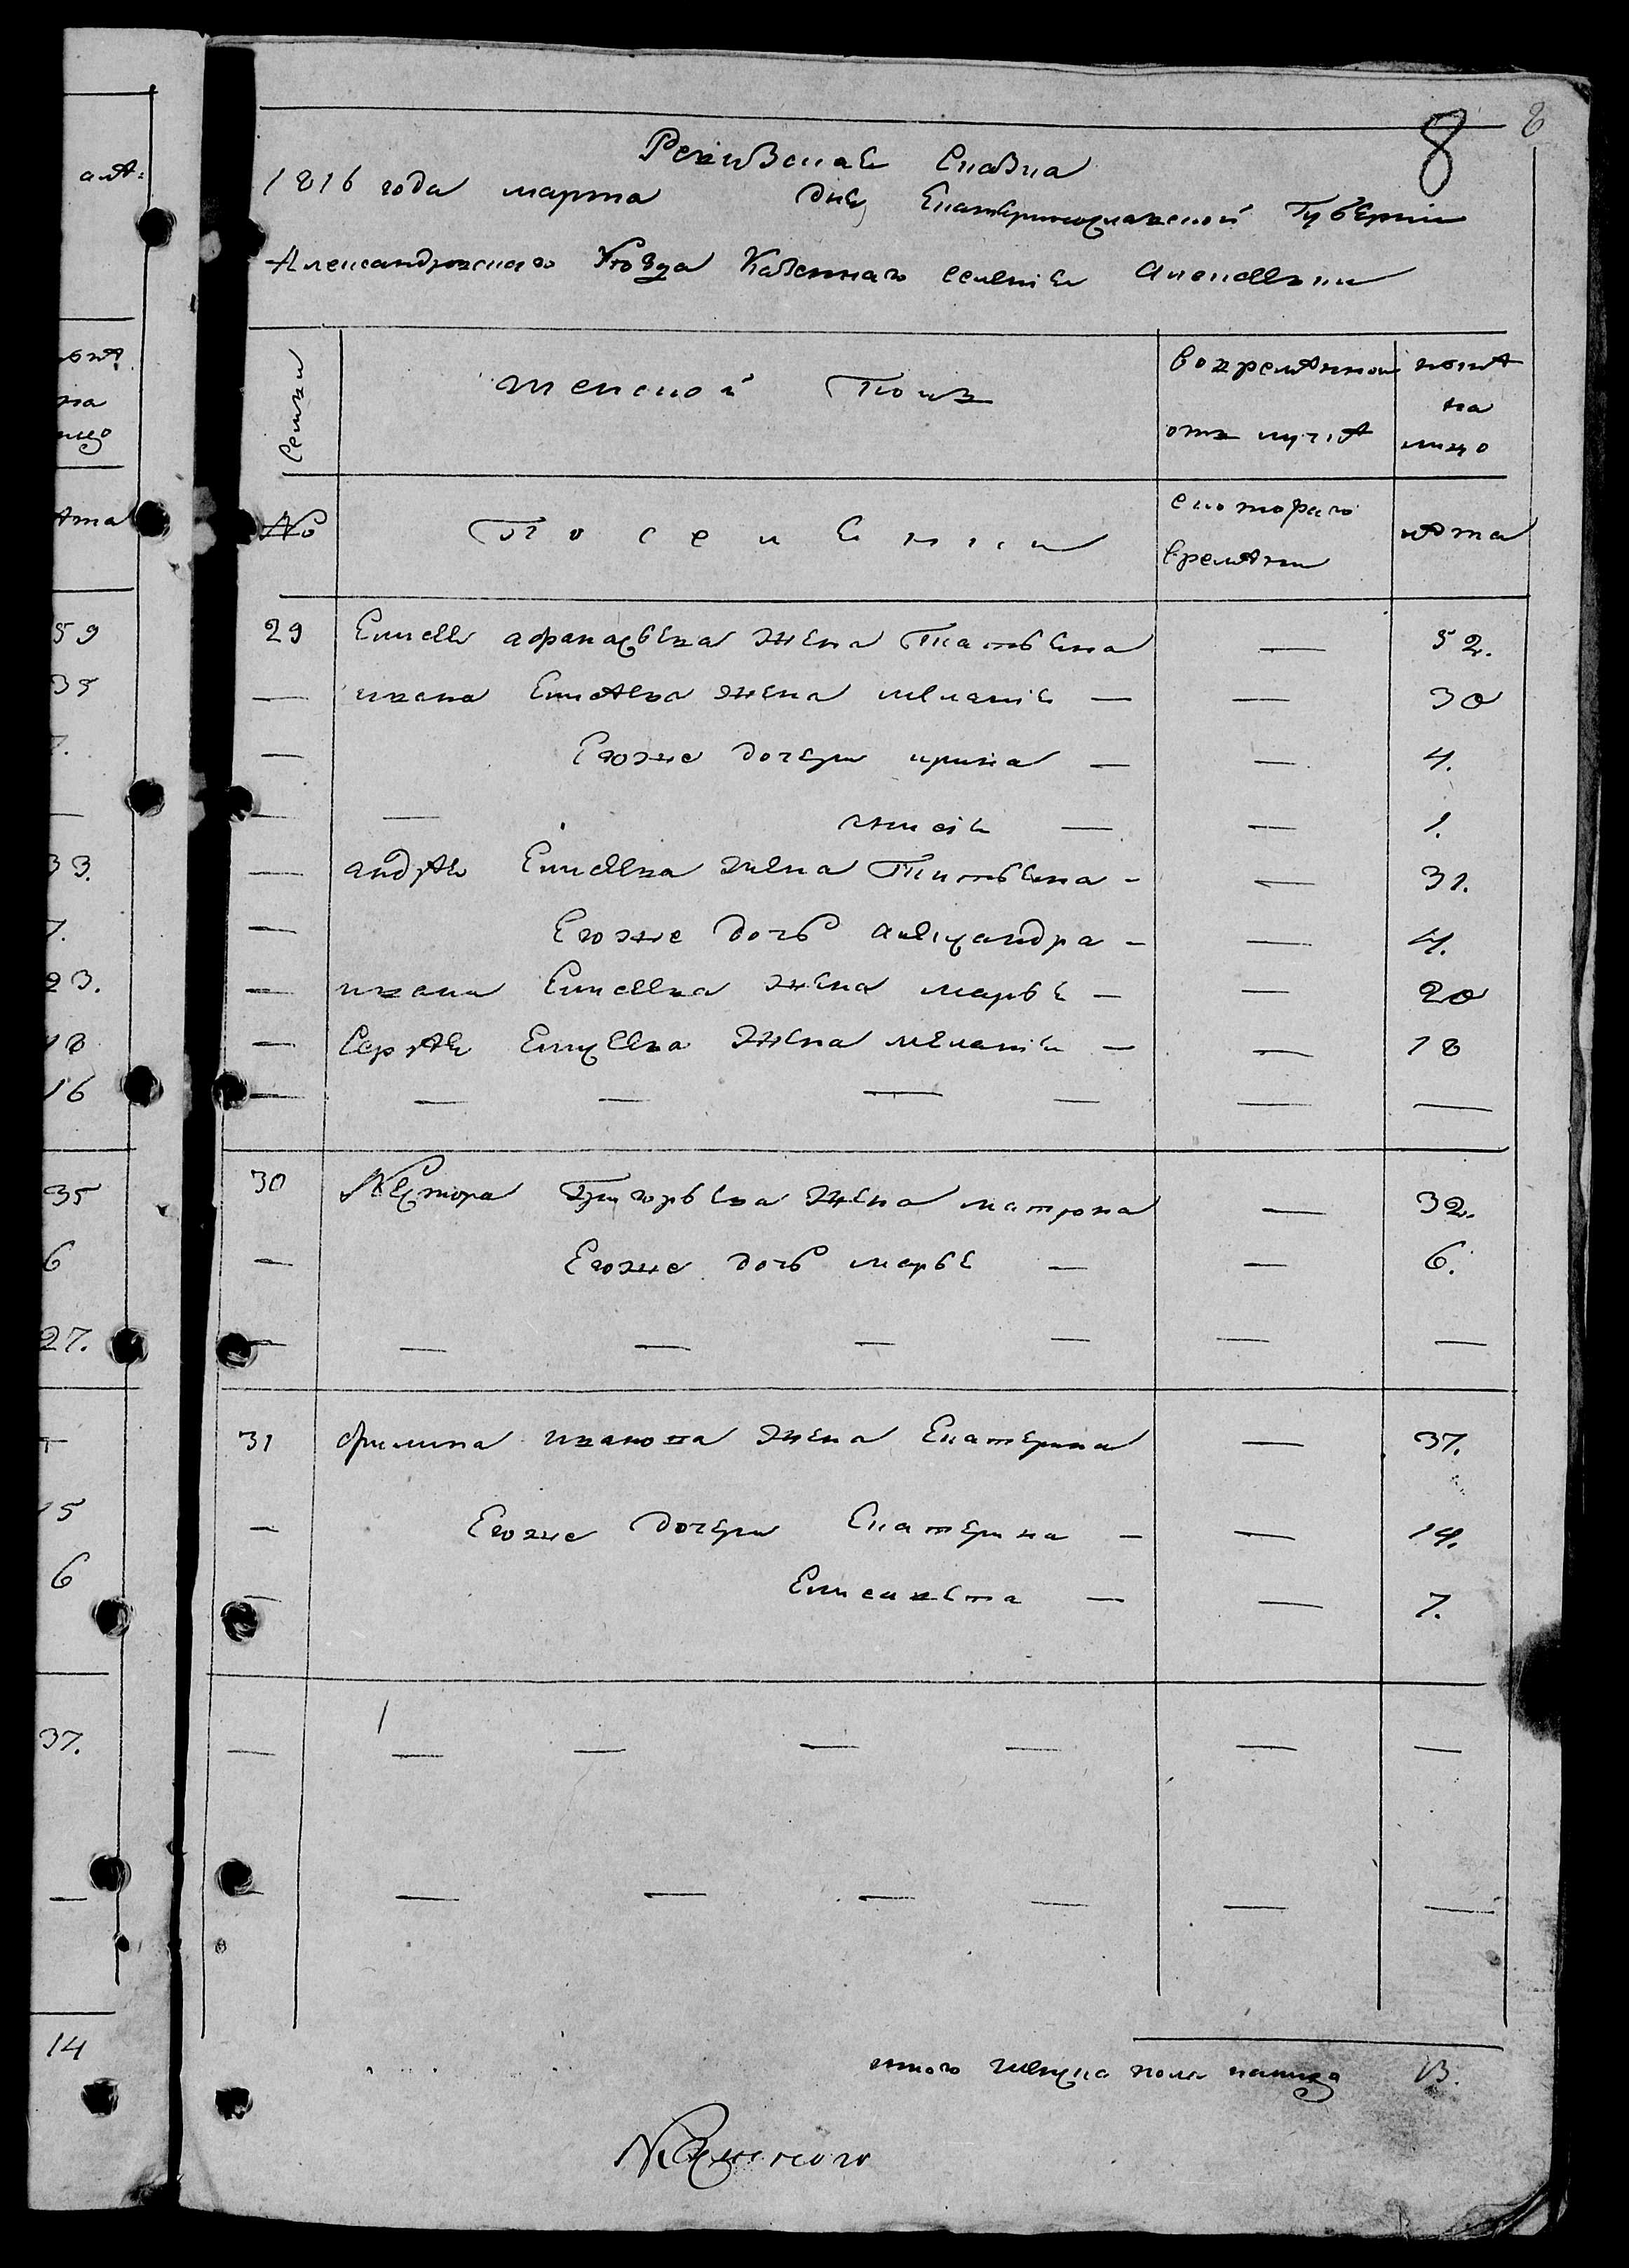 8 8
Ревизская Сказка
1816 года марта дня Екатеринославской Губернии
Александровского Уезда Казенного селения Алексеевки
Семьи
женской Полъ
во временной отлучкѣ
ныне на лицо
№
Поселяни
с которого времяни
лѣта
29 Елисея афанасьева жена Татьяна — 52.
— ивана Елисѣева жена меланія — — 30
— Егоже дочери ирина — — 4.
— — — — 1.
— андрѣя Елисеева жена Татьяна - — 31.
— Егоже дочь александра - — 4.
— ивана Елисеева жена марья - — 20
— Сергѣя Елисеева жена меланія — — 18
— — — — — — —
30 Нестора Григорьева жена матрона — 32.
— Егоже дочь марья — — 6.
— — — — — — —
31 филипа иванова жена Екатерина — 37.
— Егоже дочери Екатерина — — 14.
— Елисавета — — 7.
— — — — — — —
— — — — — — —
итого женска пола налицо 13.
59
35
7.
—
33.
7.
23.
18
16
35
6
27.
15
6
37.
—
14